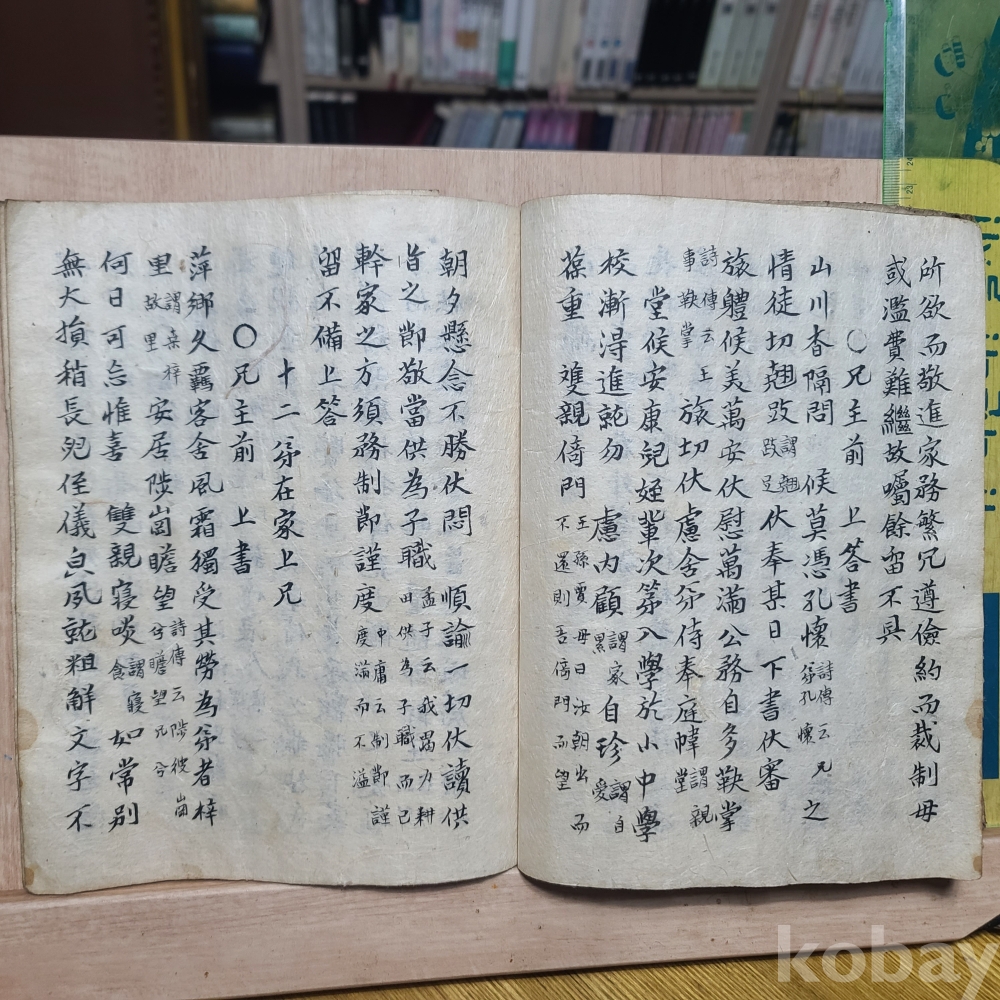 所欲而敬進家務繁冗遵儉約而裁制毋
或濫費難繼故囑餘留不具
○兄主前 上答書
山川杳隔問 候莫憑孔懷詩傳云兄弟孔懷之
情徒切翹跂謂翹跂足伏奉某日下書伏審
旅體候美萬安伏慰萬滿公務自多鞅掌
詩傳云王事鞅掌旅切伏慮舍弟侍奉庭幃謂親堂
堂候安康兒姪輩次第入學於小中學
校漸得進就勿 慮內顧謂家累自珍謂自愛
葆重 雙親倚門王孫賈母曰汝朝出而不還則吾倚門而望
朝夕懸念不勝伏悶 順諭一切伏讀供
旨之節敬當供為子職孟子云我竭力耕田供為子職而已
幹家之方須務制節謹度中庸云制節謹度滿而不溢
留不備上答
十二 弟在家上兄
○兄主前 上書
萍鄉久覊客舍風霜獨受其勞為弟者梓
里謂桑梓故里安居陟崗瞻望詩傳云陟彼崗兮瞻望兄兮
何日可忘惟喜 雙親寢啖謂寢食如常別
無大損稍長兒侄儀皃夙就粗解文字不
kobay